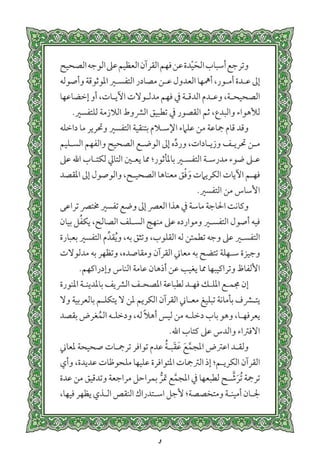 وترجع أسباب الحَيْدة عن فهم القرآن العظيم على الوجه الصحيح
إلى عدة أمور، أهمها العدول عن مصادر التفسير الموثوقة وأصوله
الصحيحة، وعدم الدقة في فهم مدلولات الآيات، أو إخضاعها
للأهواء والبدع، ثم القصور في تطبيق الشروط اللازمة للتفسير.
وقد قام جماعة من علماء الإسلام بتنقية التفسير وتحرير ما داخله
من تحريف وزيادات، وردِّه إلى الوضع الصحيح والفهم السليم
على ضوء مدرسة التفسير بالمأثور؛ مما يعين التالي لكتاب الله على
فهم الآيات الكريمات وَفْق معناها الصحيح، والوصول إلى المقصد
الأساس من التفسير.
وكانت الحاجة ماسة في هذا العصر إلى وضع تفسير مختصر تراعى
فيه أصول التفسير وموارده على منهج السلف الصالح، يكفُل بيان
التفسير على وجه تطمئن له القلوب، وتثق به، ويُقدِّم التفسير بعبارة
وجيزة سهلة تتضح به معاني القرآن ومقاصده، وتظهر به مدلولات
الألفاظ وتراكيبها مما يغيب عن أذهان عامة الناس وإدراكهم.
إن مجمع الملك فهد لطباعة المصحف الشريف بالمدينة المنورة
يتشرف بأمانة تبليغ معاني القرآن الكريم لمن لا يتكلم بالعربية ولا
يعرفها، وهو باب دخله من ليس أهلًا له، ودخله المُغرض بقصد
الافتراء والدس على كتاب الله.
ولقد اعترض المجمَّعَ عَقَبَةُ عدم توافر ترجمات صحيحة لمعاني
القرآن الكريم؛ إذ الترجمات المتوافرة عليها ملحوظات عديدة، وأي
ترجمة تُرَشَّح لطبعها في المجمَّع تمرُّ بمراحل مراجعة وتدقيق من عدة
لجان أمينة ومتخصصة؛ لأجل استدراك النقص الذي يظهر فيها،
ز